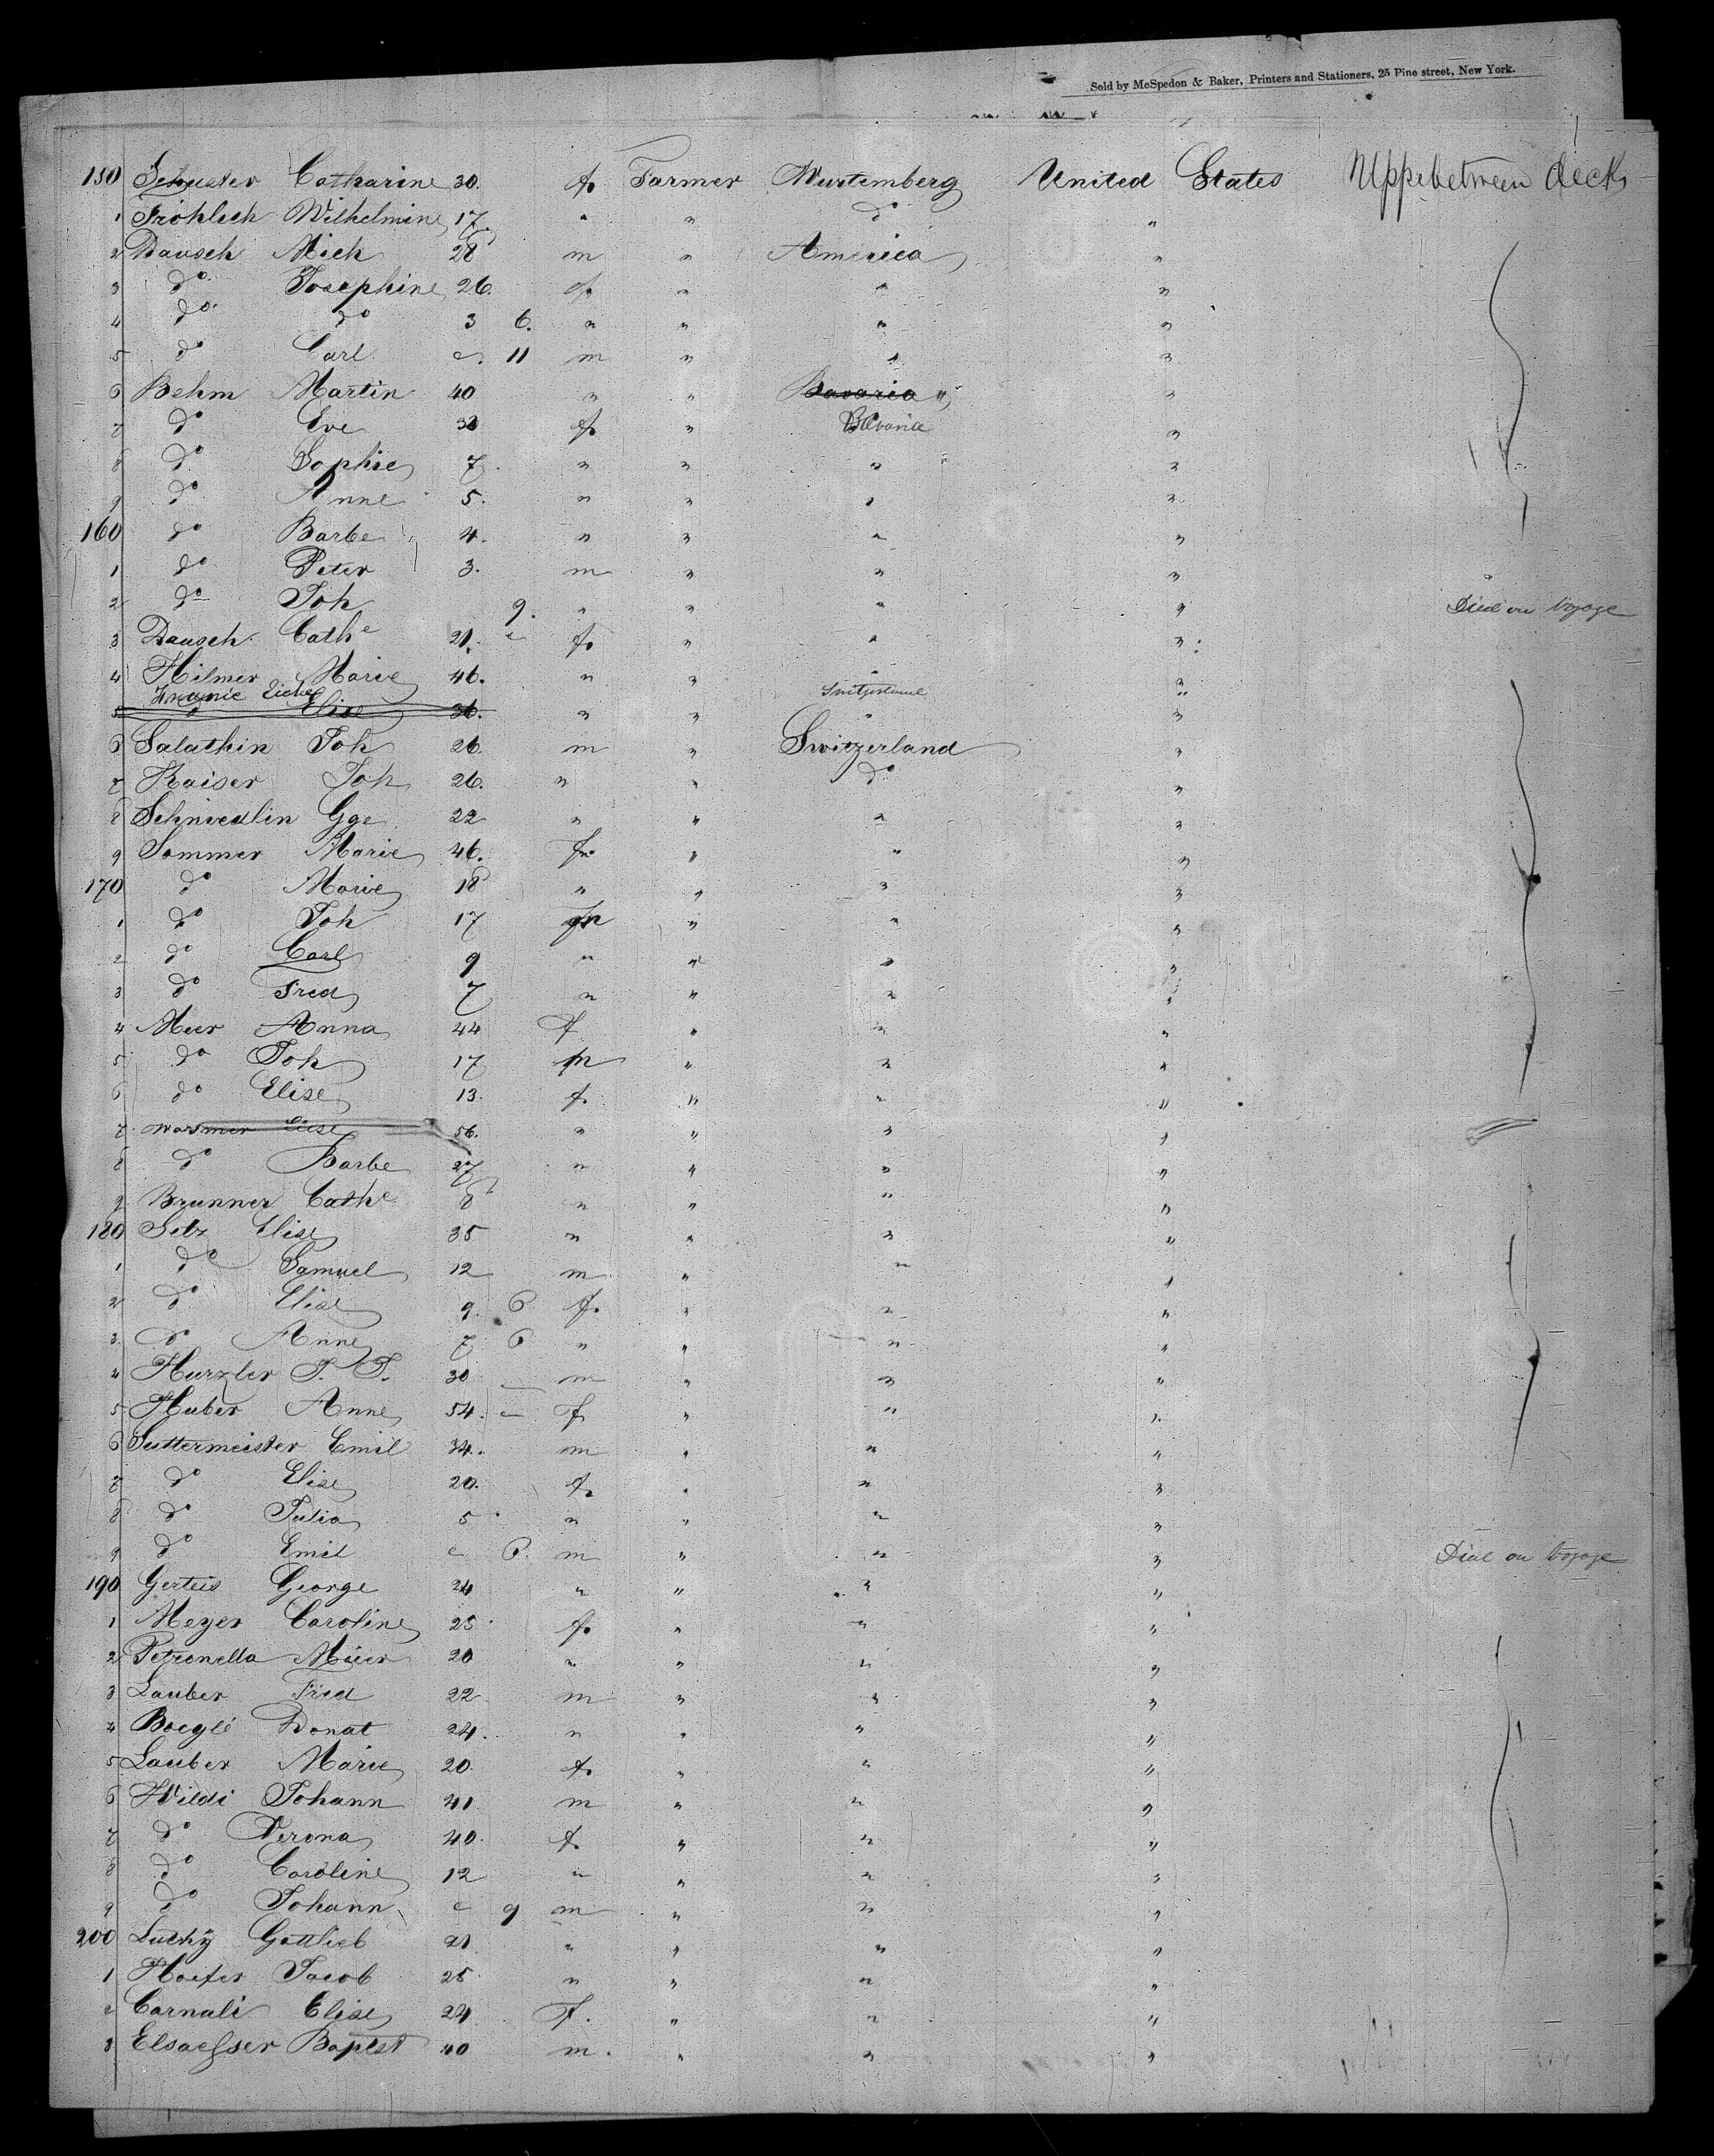 Sold by McSpedon & Baker, Printers and Stationers, 25 Pine street, New York.
150 Schuster Catharine 30. f. Farmer Wurtemberg United States Uppebetween deck
1 Fröhlich Wilhelmine 17. " " do "
2 Dausch Mich 28 m " America "
3 do Josephine 26. f. " " "
4 do do 3 6. " " " "
5 do Carl 11 m " " "
6 Behm Martin 40 " " Bavaria " "
7 do Eve f. " Bavaria "
8 do Sophie 7. " " " "
9 do Anne 5. " " " "
160 do Barbe 4. " " " "
1 do Peter 3. m " " "
2 do Joh 9. " " " " Died on Voyage
3 Dausch Cathe 21. f. " " "
4 Hilmer Marie 46. " " " "
Switzerland "
5 do Elise 36. " " " "
6 Salathin Joh 26. m " Switzerland "
7 Kaiser Joh 26. " " do "
8 Schniedlin Gge 22 " " " "
9 Sommer Marie 46. f. " " "
170 do Marie 18 " " " "
1 do Joh 17 m " " "
2 do Carl 9 " " " "
3 do Fred 7 " " " "
4 Meer Anna 44 f " " "
5 do Joh 17 m " " "
6 do Elise 13. f. " " "
7 Elise 56. " " " "
8 do Barbe 27 " " " "
9 Brunner Cathe 8 " " " "
180 Setz Elise 35 " " " "
1 do Samuel 12 m " " "
2 do Elise 9. 6 f. " " "
3 do Anne 7 6 " " " "
4 Hurzler J. J. 30 m " " "
5 Huber Anne 54. f " " "
6 Suttermeister Emil 34. m " " "
7 do Elise 20. f. " " "
8 do Julia 5 " " " "
9 do Emil 6. m " " " Died on Voyage
190 Gerteis George 24 " " " "
1 Meyer Caroline 25 f. " " "
2 Petronella Müer 20 " " " "
3 Lauber Fried 22 m " " "
4 Boegli Donat 24. " " " "
5 Lauber Marie 20. f. " " "
6 Wildi Johann 41 m " " "
7 do Verona 40. f. " " "
8 do Caroline 12 " " " "
9 do Johann 9 m " " "
200 Luchy Gottlieb 21 " " " "
1 Hoefer Jacob 25 " " " "
2 Carnali Elise 24 f. " " "
3 Elsaesser Baptist 40 m. " " "